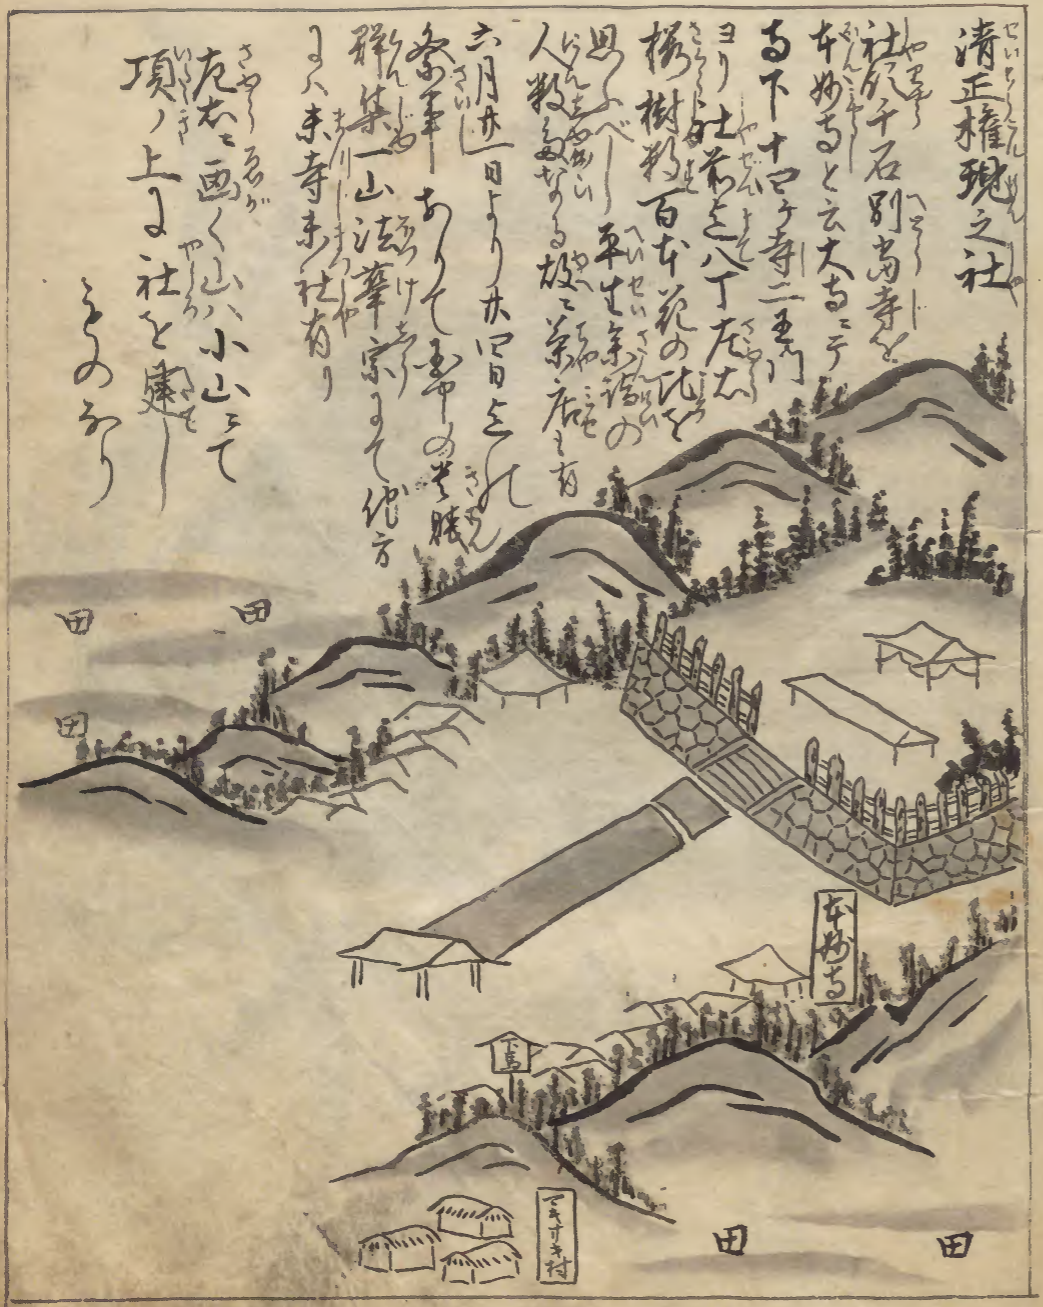 清正権現之社
社領千石別当寺を
本妙寺と云大寺ニテ
寺下十四ヶ寺二王門
ヨリ社前迄八丁左右
桜樹数百本花の比を
思ふべし平生参詣の
人数多なる故ニ茶店も有
六月廿一日より廿四日迄
祭事ありて国中の貴賤
群集一山法華宗にて他方
にハ末寺末社有り
左右ニ画く山ハ小山にて
項ノ上に社を建し
ものなり
田
田
田
本妙寺
下馬
村
田
田